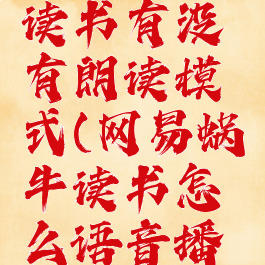 读书有没
有朗读模
式(网易蜗
牛读书怎
么语音播